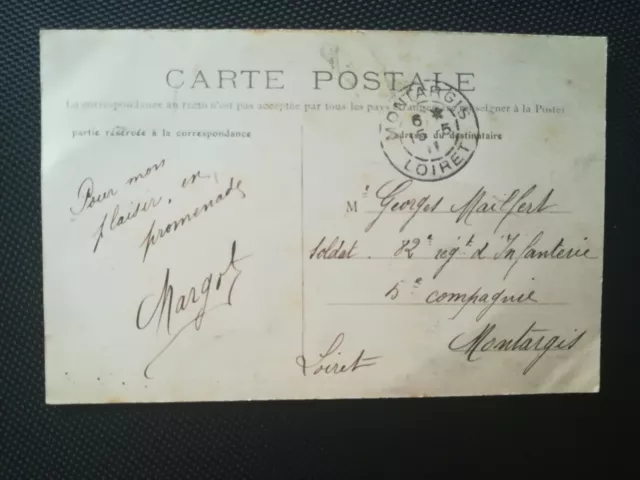 CARTE POSTALE
La correspondance au recto n'est pas acceptée par tous les pays étrangers à la Poste
partie réservée à la correspondance
adresse du destinataire
MONTARGIS
LOIRET
Pour mon
plaisir, en
promenade
Margot
Mr Georges Mailfert
soldat. 82e régt d'Infanterie
5e compagnie
Montargis
Loiret